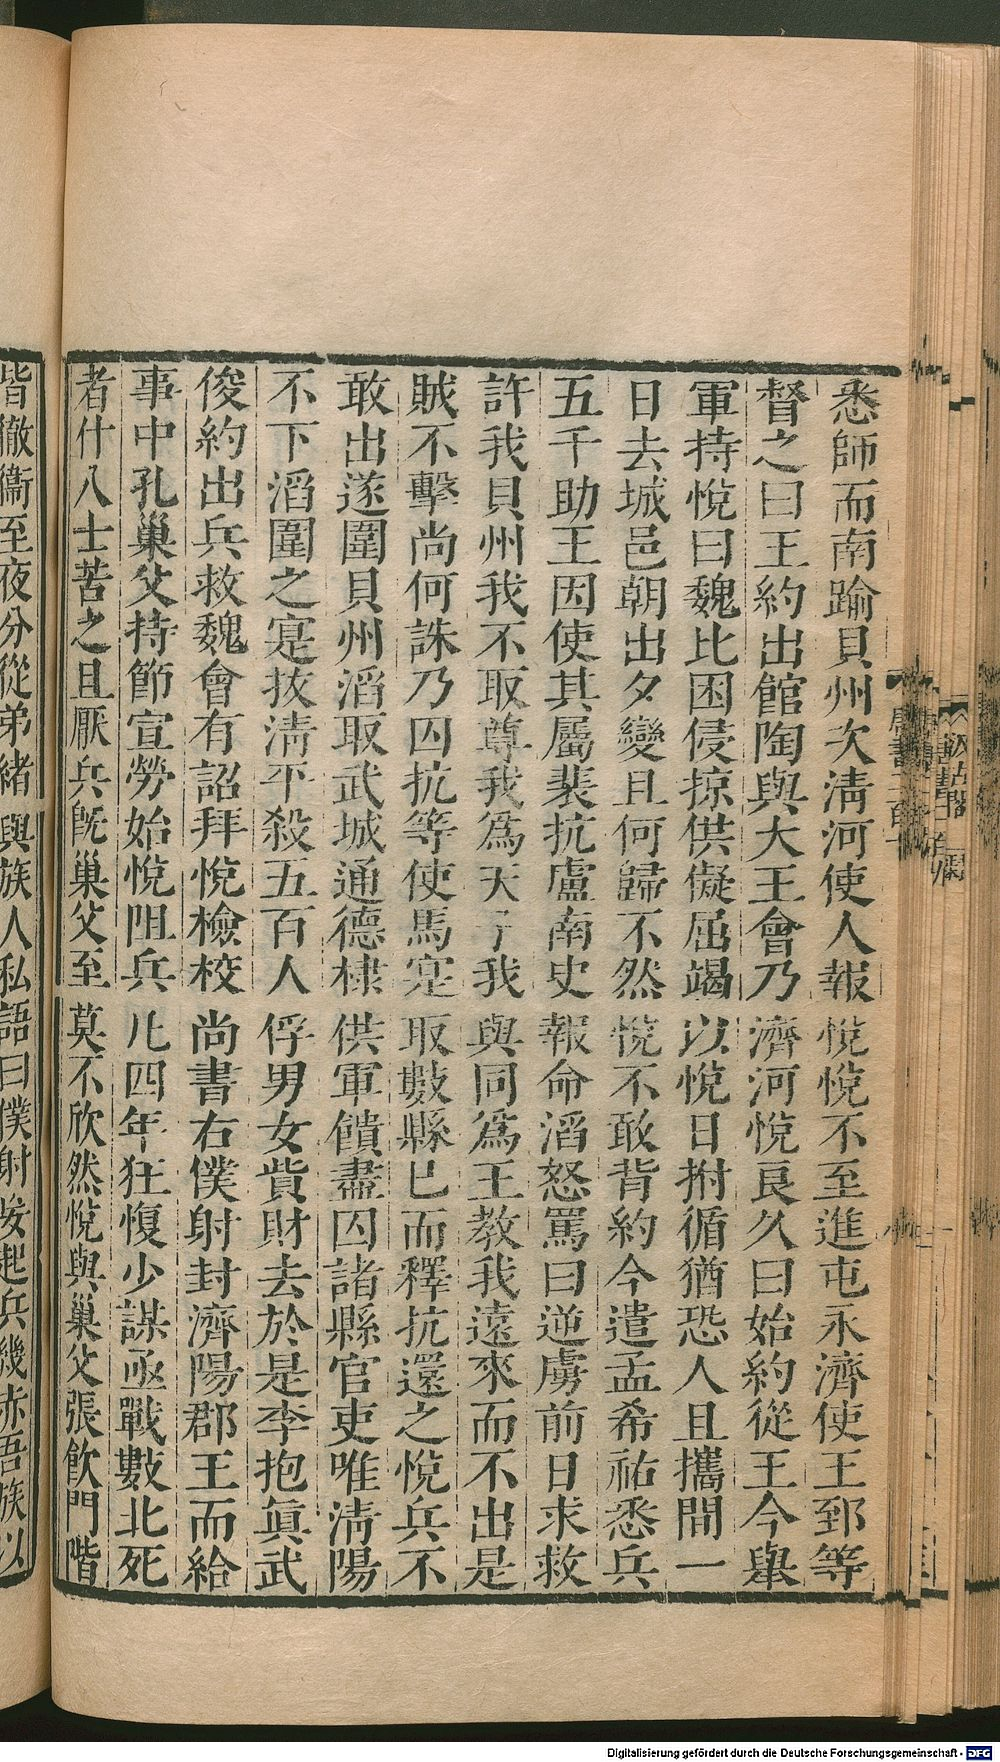 悉師而南踰貝州次淸河使人報悅悅不至進屯永濟使王郅等
督之曰王約出館陶與大王會乃濟河悅良久曰始約從王今舉
軍持悅曰魏比困侵掠供儗屈竭以悅日拊循猶恐人且攜間一
日去城邑朝出夕變且何歸不然悅不敢背約今遣孟希祐悉兵
五千助王因使其屬裴抗盧南史報命滔怒罵曰逆虜前日求救
許我貝州我不取尊我爲天子我與同爲王教我遠來而不出是
賊不擊尚何誅乃囚抗等使馬寔取數縣已而釋抗還之悅兵不
敢出遂圍貝州滔取武城通德棣供軍饋盡囚諸縣官吏唯淸陽
不下滔圍之寔拔淸平殺五百人俘男女貲財去於是李抱眞武
俊約出兵救魏會有詔拜悅檢校尚書右僕射封濟陽郡王而給
事中孔巢父持節宣勞始悅阻兵凡四年狂愎少謀亟戰數北死
者什八士苦之且厭兵旣巢父至莫不欣然悅與巢父張飮門階
皆徹衞至夜分從弟緒與族人私語曰僕射妄起兵幾赤吾族以
Digitalisierung gefördert durch die Deutsche Forschungsgemeinschaft - DFG